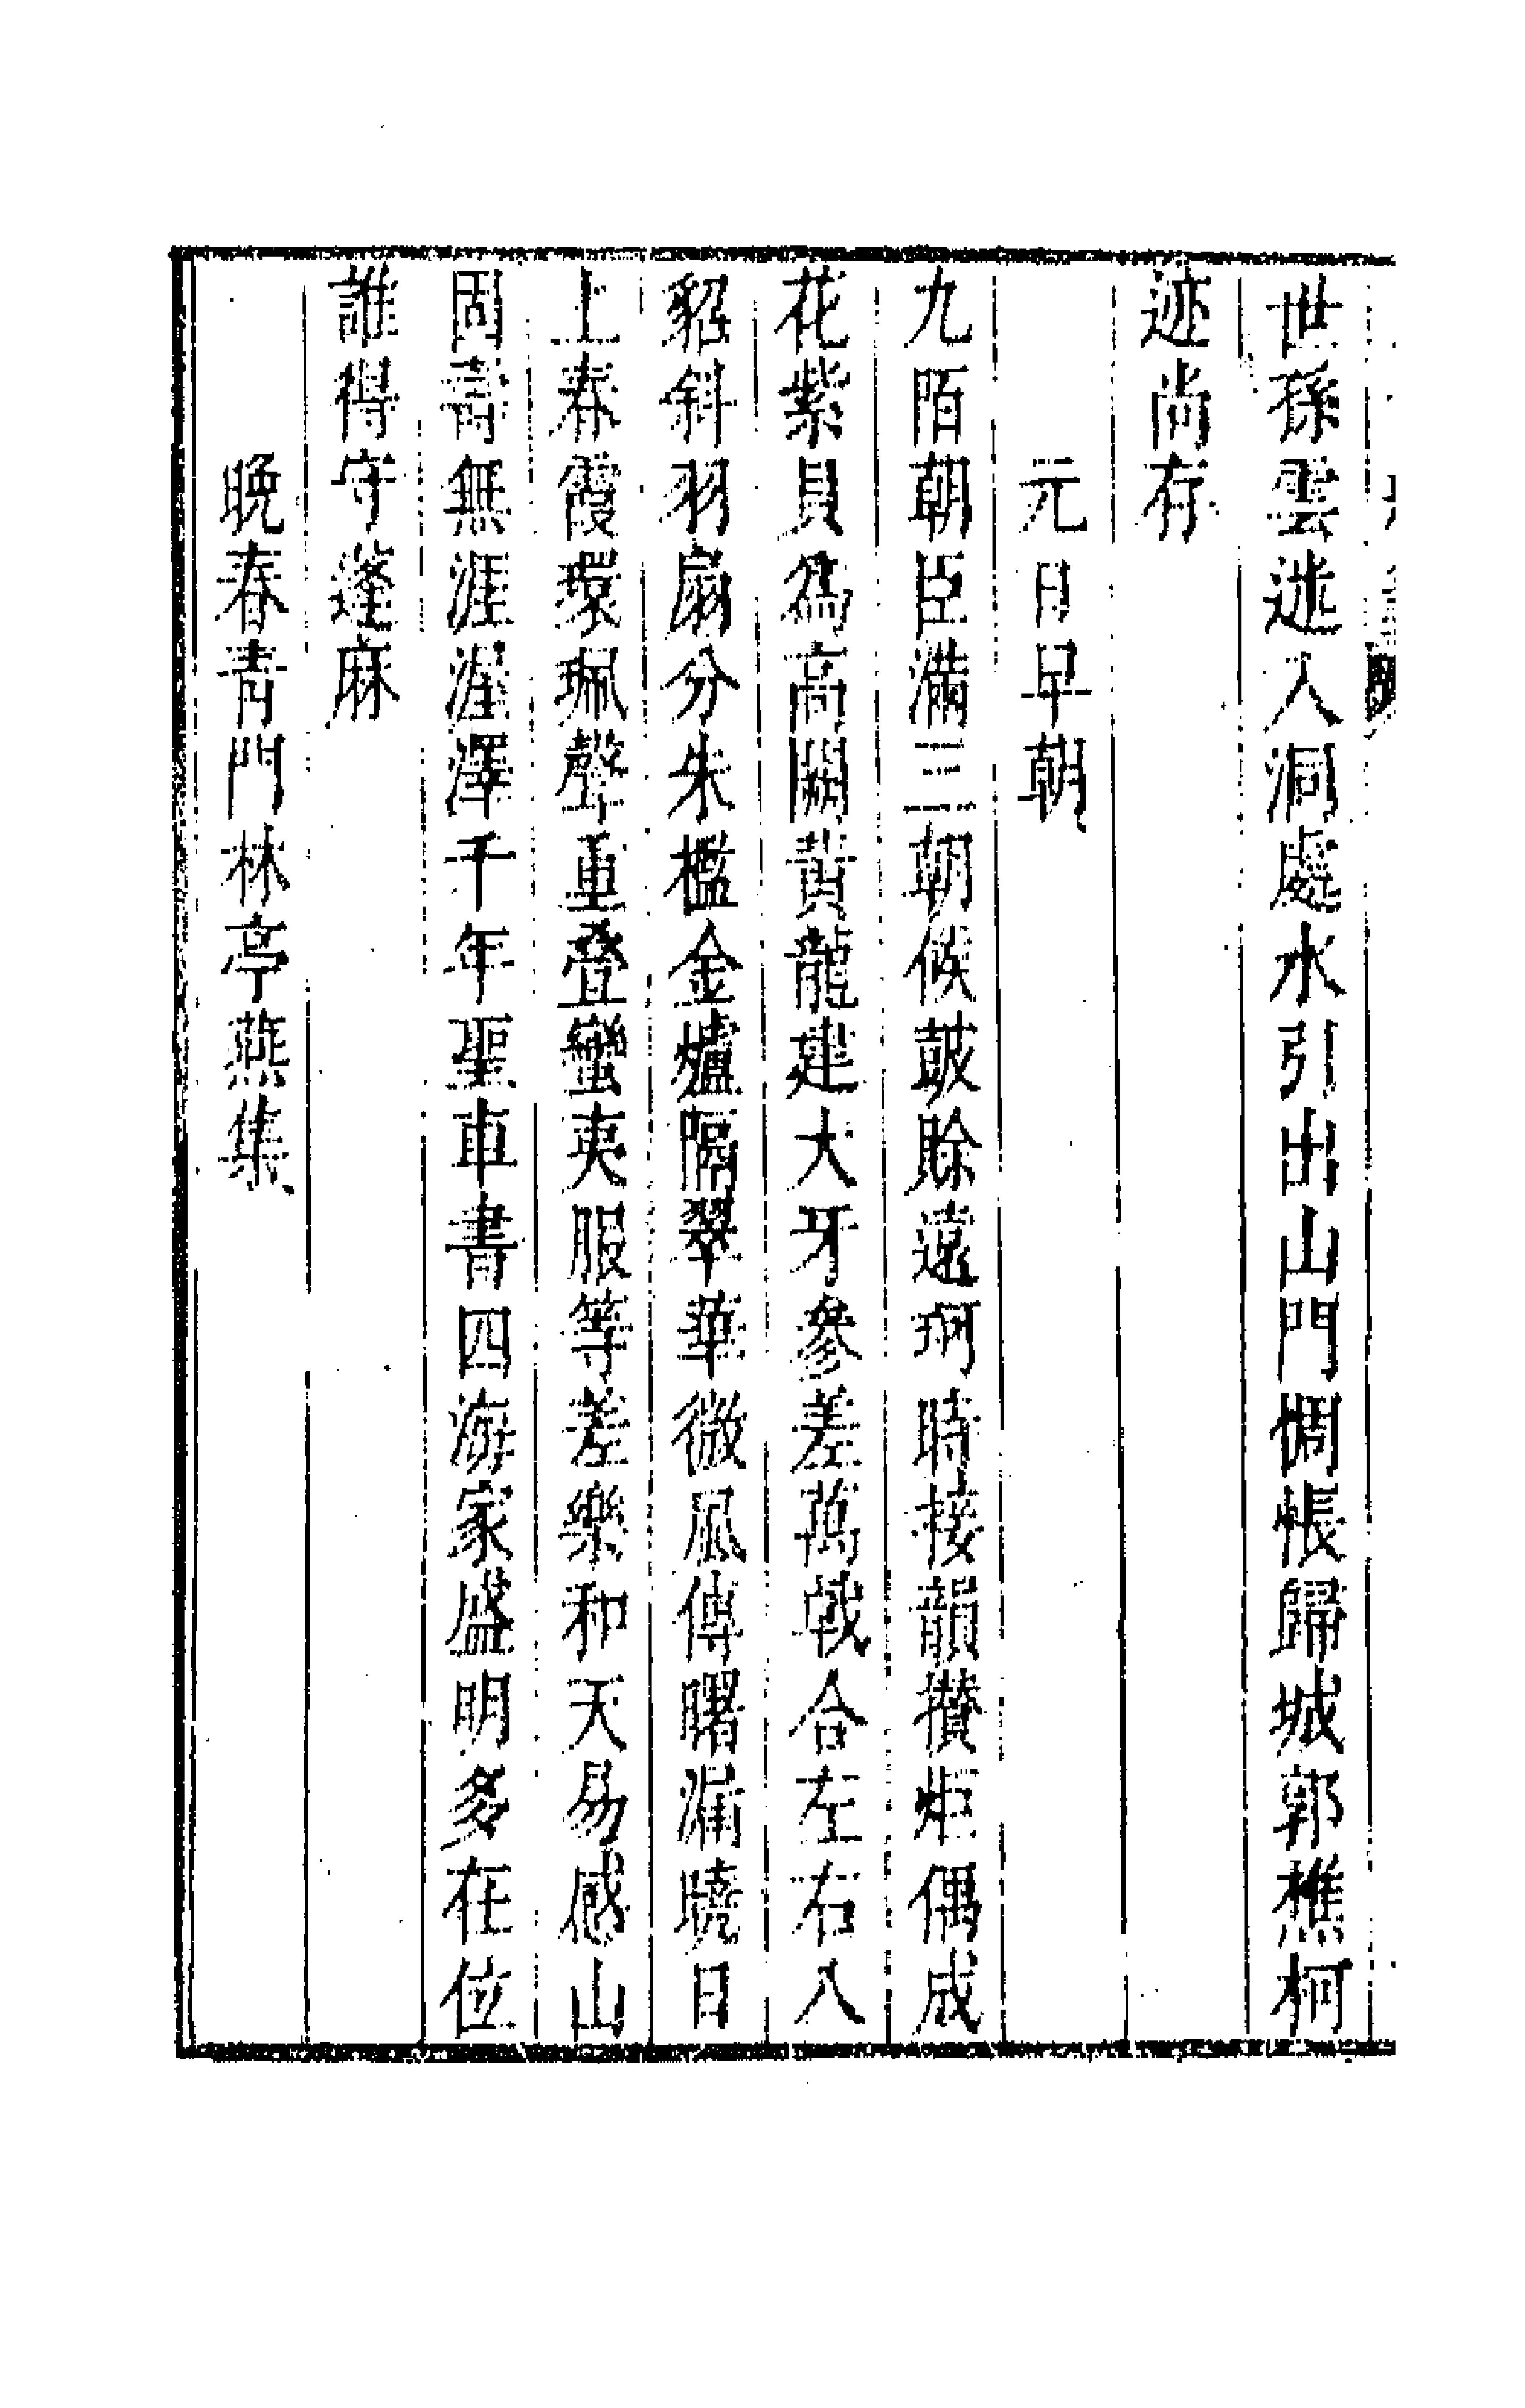 世孫雲迷入洞處水引出山門惆悵歸城郭樵柯
迹尚存
元日早朝
九陌朝臣滿三朝候鼓賖遠珂時接韻攅炬偶成
花紫貝爲高闕黃龍建大牙參差萬戟合左右八
貂斜羽扇分朱檻金爐隔翠華微風傳曙漏曉日
上春霞環珮聲重叠蠻夷服等差樂和天易感山
固壽無涯渥澤千年聖車書四海家盛明多在位
誰得守蓬麻
晚春青門林亭燕集